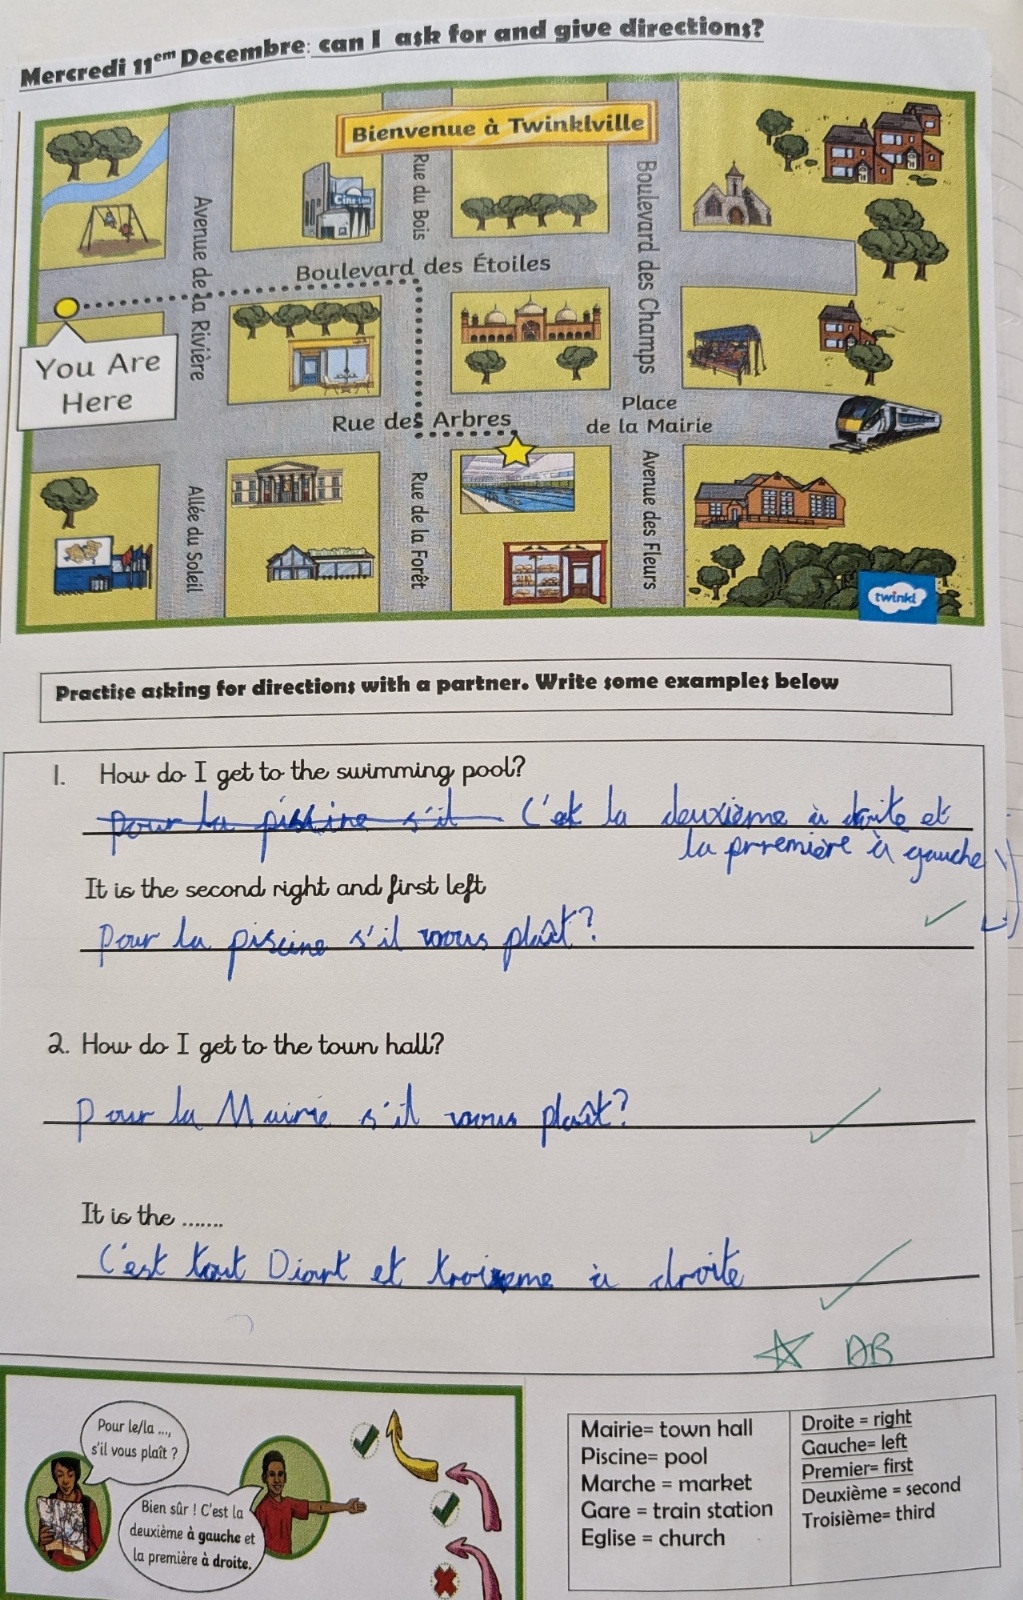 Mercredi 11em Decembre: can I ask for and give directions?
Bienvenue à Twinklville
Avenue de la Rivière
Rue du Bois
Boulevard des Champs
Boulevard des Étoiles
You Are
Here
Rue des Arbres
Place
de la Mairie
Allée du Soleil
Rue de la Forêt
Avenue des Fleurs
twinkl
Practise asking for directions with a partner. Write some examples below
1. How do I get to the swimming pool?
pour la pistine s'il C'et la deuxième à droite et
la prremière à gauche
It is the second right and first left
Pour la piscine s'il vous plaît?
2. How do I get to the town hall?
Pour la Mairie s'il vous plaît?
It is the .......
C'est tout Diort et troixeme à droite
DB
Pour le/la ...,
s'il vous plaît ?
Bien sûr ! C'est la
deuxième à gauche et
la première à droite.
Mairie= town hall
Piscine= pool
Marche = market
Gare = train station
Eglise = church
Droite = right
Gauche= left
Premier= first
Deuxième = second
Troisième= third